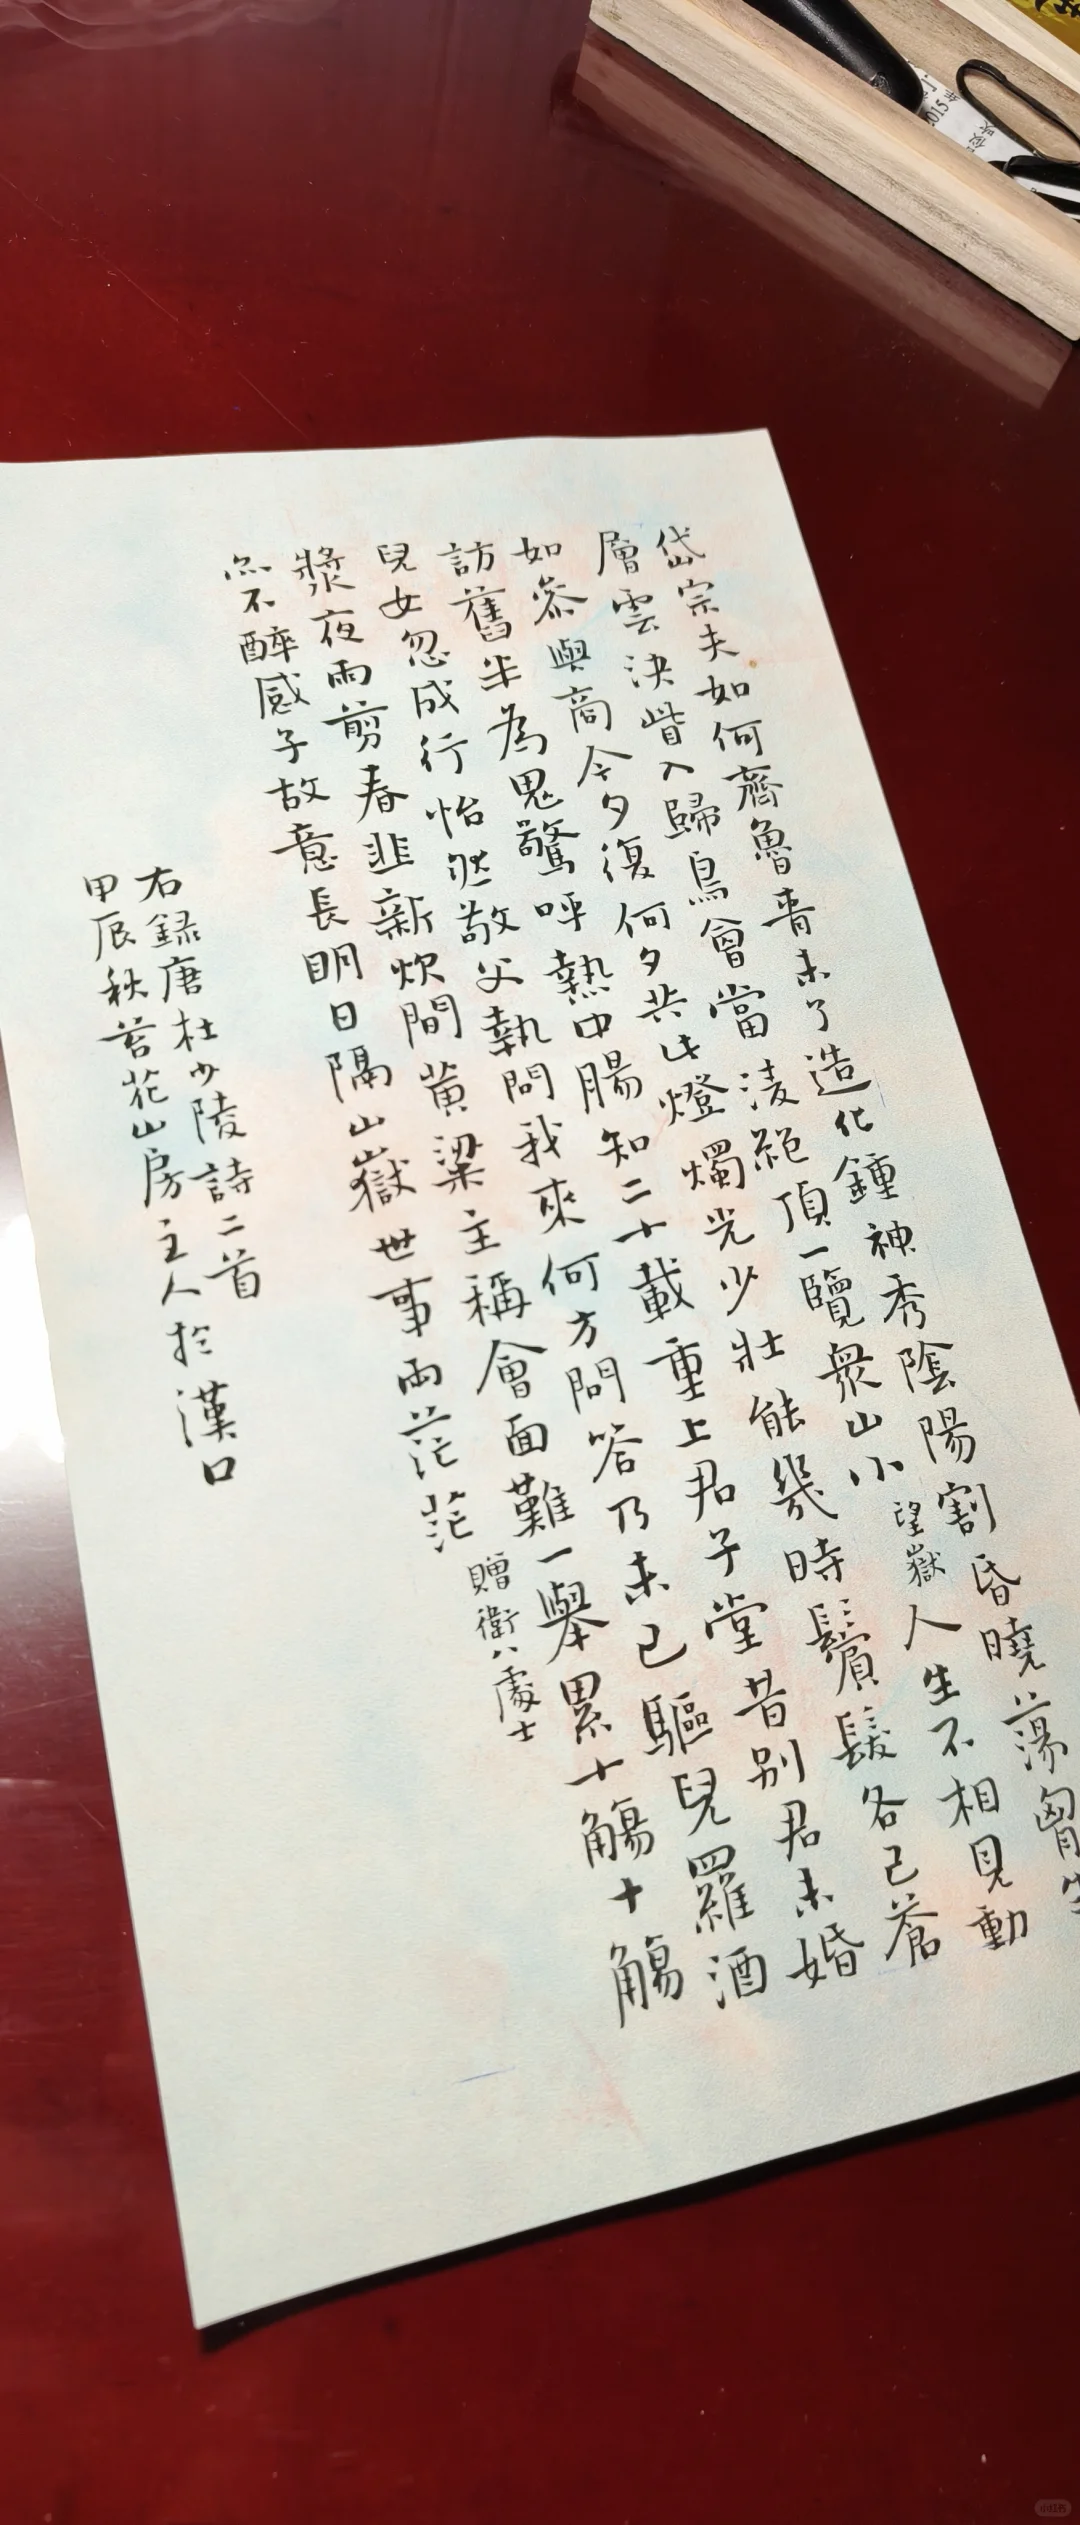 岱宗夫如何齊魯青未了造化鍾神秀陰陽割昏曉蕩胷生
層雲決眥入歸鳥會當淩絕頂一覽衆山小望嶽人生不相見動
如參與商今夕復何夕共此燈燭光少壯能幾時鬢髮各已蒼
訪舊半為鬼驚呼熱中腸知二十載重上君子堂昔別君未婚
兒女忽成行怡然敬父執問我來何方問答乃未已驅兒羅酒
漿夜雨剪春韭新炊間黃粱主稱會面難一舉累十觴十觴
亦不醉感子故意長明日隔山嶽世事兩茫茫贈衛八處士
右録唐杜少陵詩二首
甲辰秋苔花山房主人於漢口
2015年
小红书